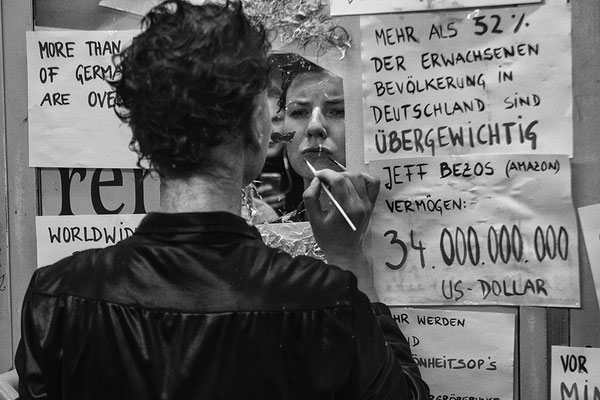 MORE THAN
OF GERMA
ARE OVE
ren
WORLDWID
MEHR ALS 52%
DER ERWACHSENEN
BEVÖLKERUNG IN
DEUTSCHLAND SIND
ÜBERGEWICHTIG
JEFF BEZOS (AMAZON)
VERMÖGEN:-
34.000.000.000
US-DOLLAR
HR WERDEN
ND
ÖNHEITSOP'S
VOR
MIN